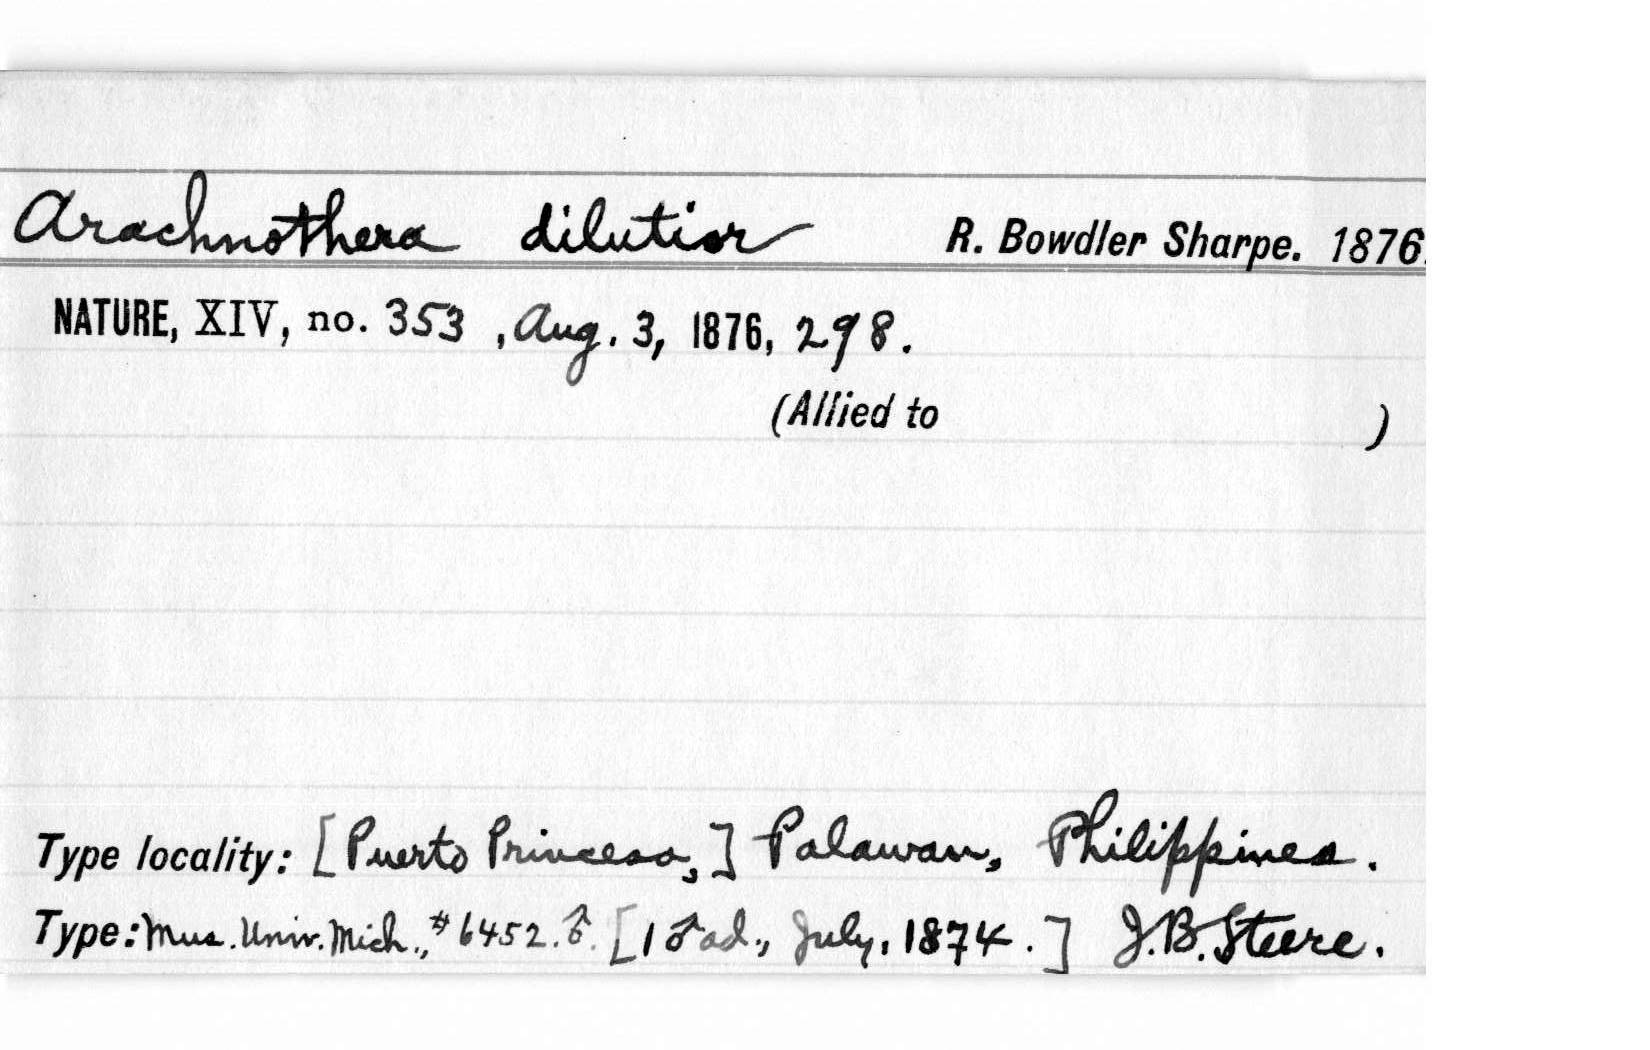 Arachnothera dilutior R. Bowdler Sharpe. 1876.
NATURE, XIV, no. 353, Aug. 3, 1876, 298.
(Allied to )
Type locality: [Puerto Princesa,] Palawan, Philippines.
Type: Mus. Univ. Mich., #6452. ♂. [1 ♂ ad., July, 1874.] J.B. Steere.